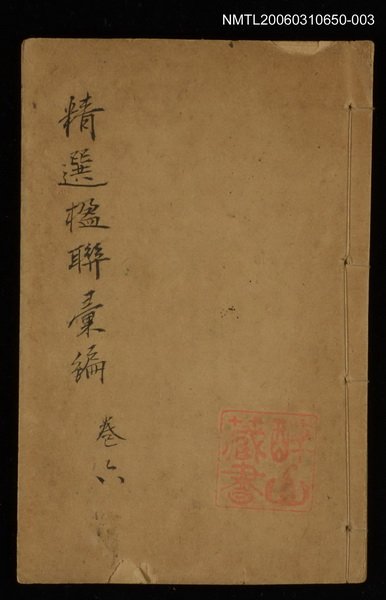 NMTL20060310650-003
精選楹聯彙編
卷六
藏書